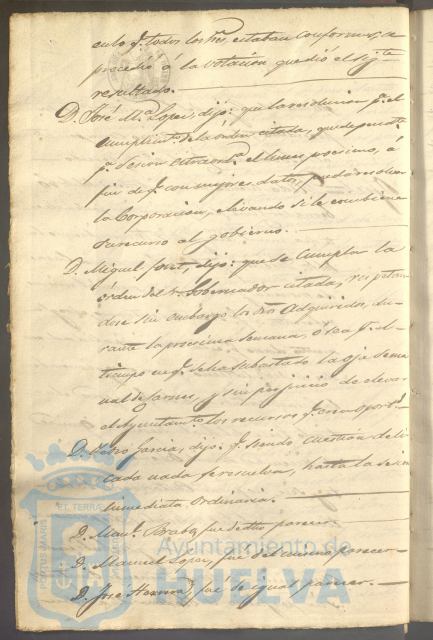 cuto q.e todos los Sres. estaban conformes, se
procedió á la votación que dió el sig.te
resultado.
D. José M.a Lopez, dijo: que la resolucion p.a el
cumplim.to de la orden citada, quede para
p.a sesion extraord.a el lunes procsimo, á
fin de q.e con mejores datos, pueda resolver
la Corporacion, elevando si le conviene
su recurso al gobierno.
D. Miguel dijo: que se cumpla la
órden del Sr. Gobernador citada, respetan-
dose sin embargo los dros adquiridos, du-
rante la procsima semana, ó sea p.r el
tiempo en q.e se ha subastado la oja sema-
nal de carnes, y sin perjuicio de elevar
el Ayuntam.to los recursos q.e crea oport.s
D. Pedro Garcia, dijo: q.e siendo cuestion deli-
cada nada se resuelva, hasta la sesion
inmediata ordinaria.
D. Man.l Brabo, fue de dho parecer
D. Manuel Lopez, fue del mismo parecer
D. José Herrera, fué de igual parecer.
PORTUS MARIS ET TERRAE
Ayuntamiento de
HUELVA